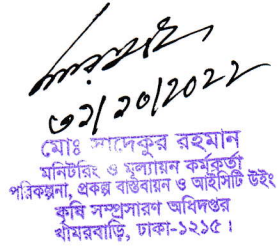 ৩১/১০/২০২২
মোঃ সাদেকুর রহমান
মনিটরিং ও মূল্যায়ন কর্মকর্তা
পরিকল্পনা, প্রকল্প বাস্তবায়ন ও আইসিটি উইং
কৃষি সম্প্রসারণ অধিদপ্তর
খামারবাড়ি, ঢাকা-১২১৫।